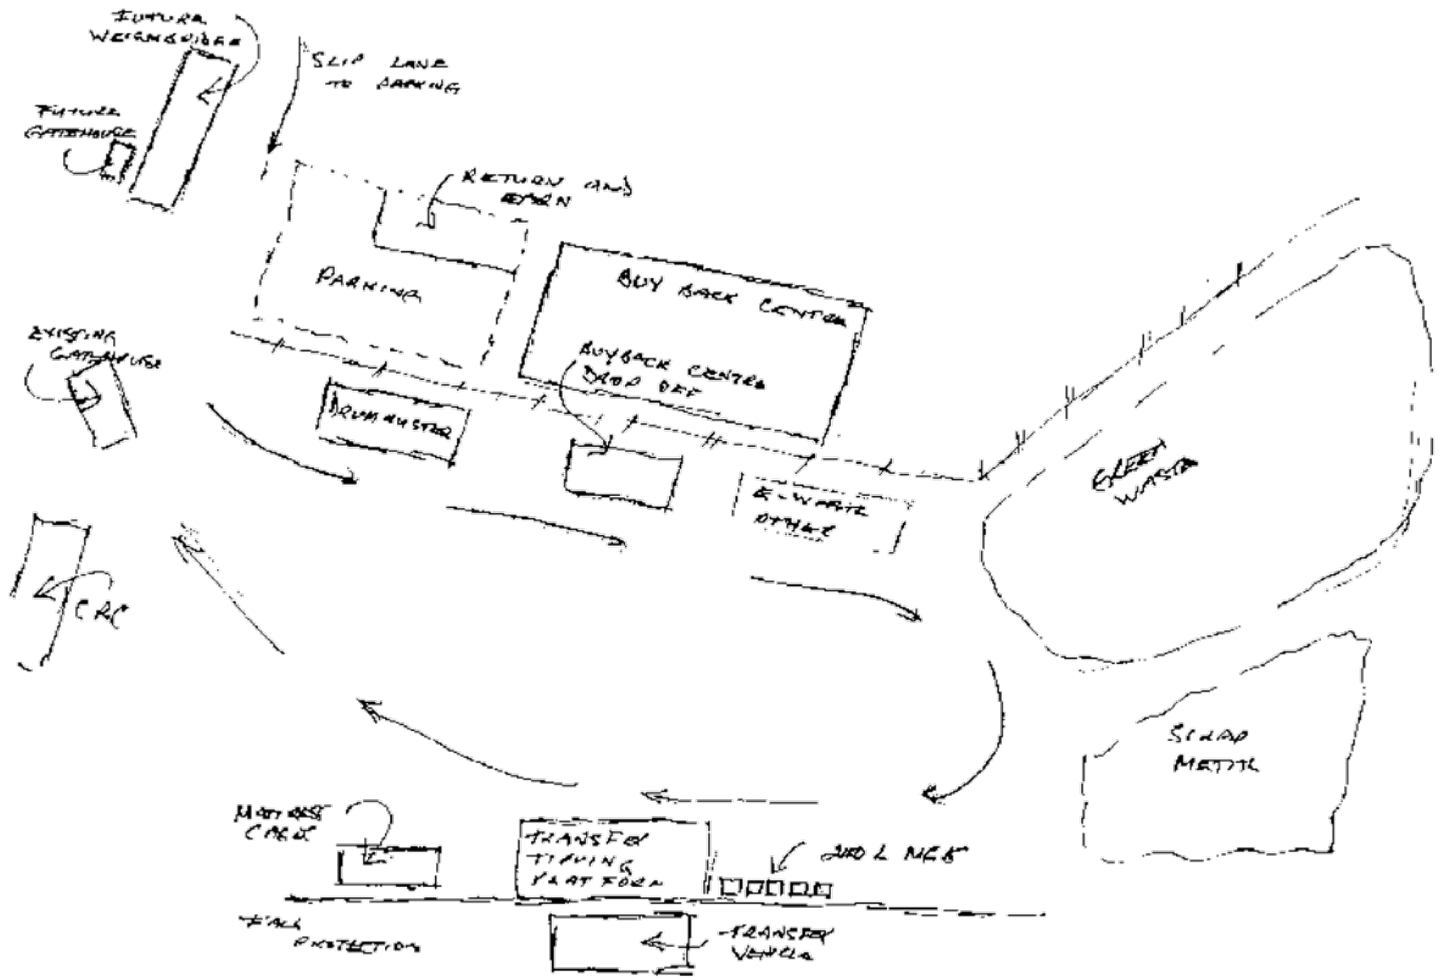 FUTURE
WEIGHBRIDGE
SLIP LANE
TO PARKING
FUTURE
GATEHOUSE
RETURN AND
EARN
PARKING
BUY BACK CENTRE
EXISTING
GATEHOUSE
BUYBACK CENTRE
DROP OFF
DRUMMUSTER
E-WASTE
OTHER
GREEN
WASTE
CRC
SCRAP
METAL
MATTRESS
TRANSFER
TIPPING
PLATFORM
240 L
FALL
PROTECTION
TRANSFER
VEHICLE